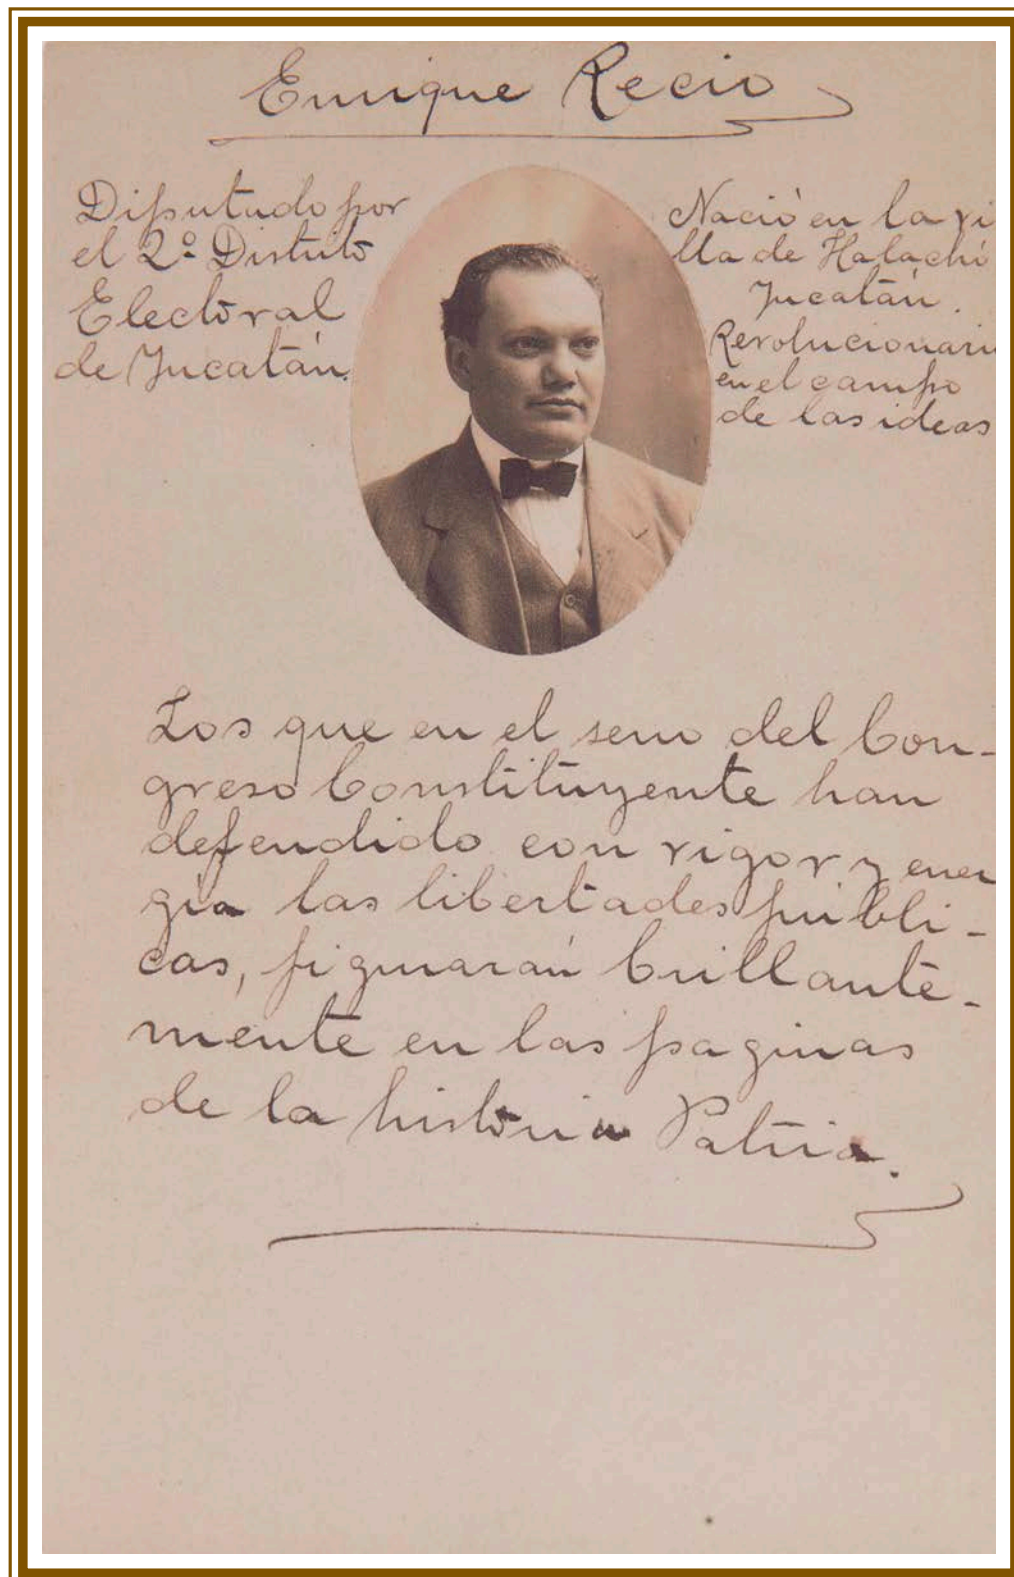 Enrique Recio
Diputado por
el 2º Distrito
Electoral
de Yucatán.
Nació en la vi
lla de Halachó
Yucatán.
Revolucionario
en el campo
de las ideas
Los que en el seno del Con-
greso Constituyente han
defendido con vigor y ener
gía las libertades públi-
cas, figurarán brillante-
mente en las paginas
de la historia Patria.